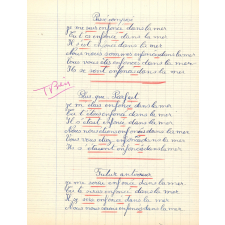 Passé composé
je me suis enfoncé dans la mer
tu t'es enfoncé dans la mer
Il s'est enfoncé dans la mer
Nous nous sommes enfoncés dans la mer
Vous vous êtes enfoncés dans la mer
Ils se sont enfoncés dans la mer
T Bien
Plus que Parfait
je m'étais enfoncé dans la mer
tu t'étais enfoncé dans la mer
Il s'était enfoncé dans la mer
Nous nous étions enfoncés dans la mer
Vous vous étiez enfoncés dans la mer
Ils s'étaient enfoncés dans la mer.
Futur antérieur
je me serai enfoncé dans la mer.
tu te seras enfoncé dans la mer
Il se sera enfoncé dans la mer
Nous nous serons enfoncés dans la mer